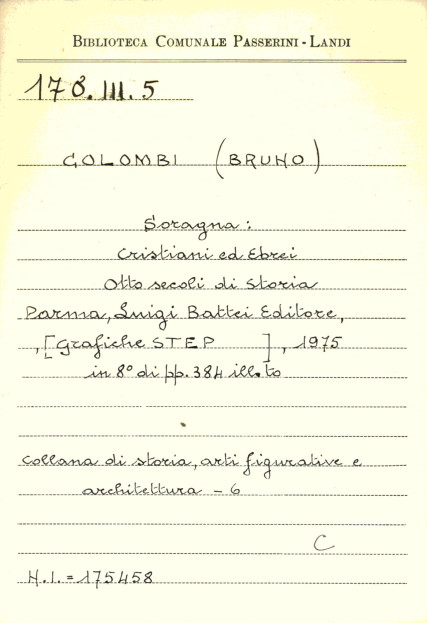 BIBLIOTECA COMUNALE PASSERINI - LANDI
178.III.5
COLOMBI (BRUNO)
Soragna:
Cristiani ed Ebrei
Otto secoli di Storia
Parma, Luigi Battei Editore,
, [Grafiche STEP ], 1975
in 8° di pp. 384 ill.to
Collana di storia, arti figurative e
architettura - 6
C
N.I. = 175458